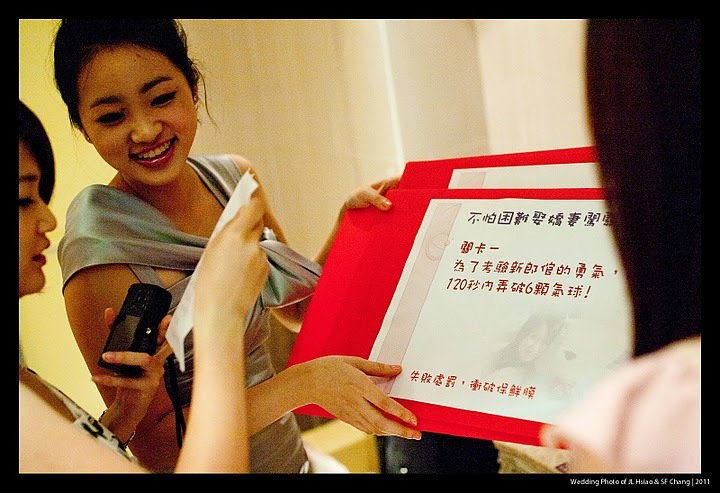 不怕困難娶嬌妻闖
關卡一
為了考驗新郎倌的勇氣，
120秒內弄破6顆氣球!
失敗處罰，衝破保鮮膜
Wedding Photo of JL Hsiao & SF Chang | 2011